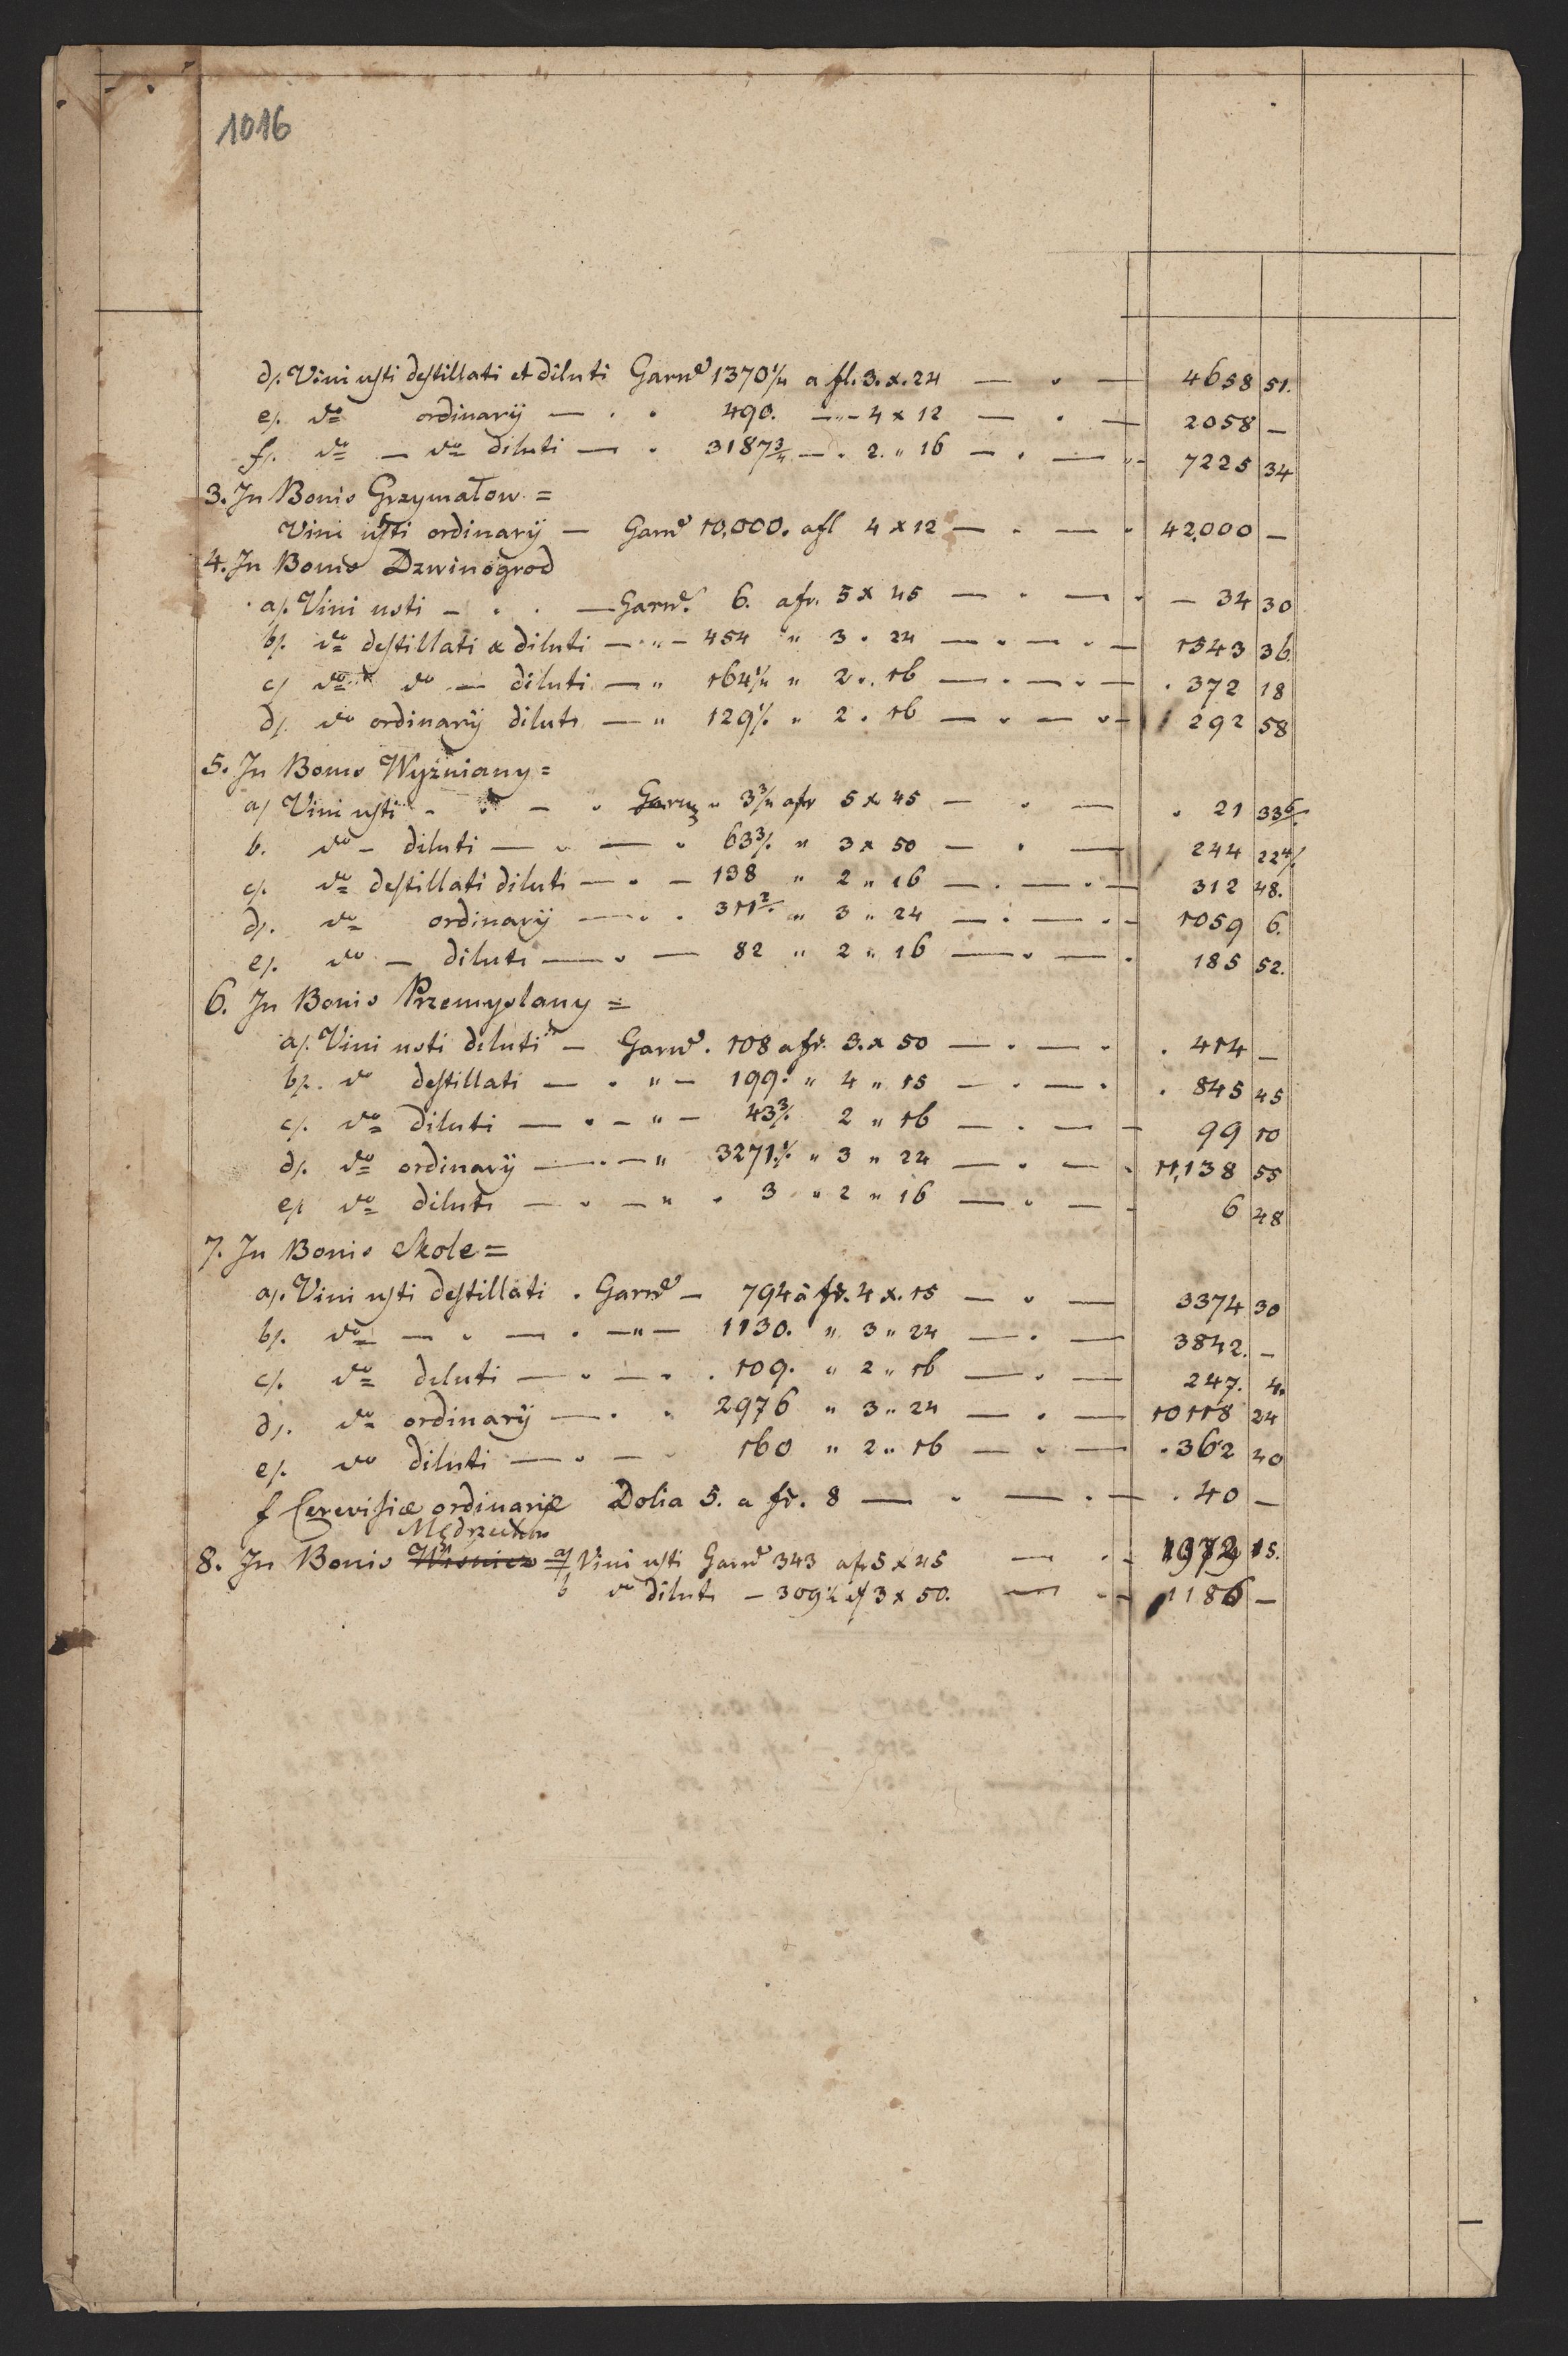 1016
d/. Vini usti destillati et diluti Garnd 1370 1/4 a fl. 3. x. 24 — 4658 51.
e/. do ordinarÿ — 490. — " — 4 x 12 — 2058 —
f/. do — do diluti — 3187 3/4 — 2. " 16 — 7225 34
3. In Bonis Grzymałow =
Vini usti ordinarÿ — Garnd 10,000. a fl 4 x 12 — 42,000 —
4. In Bonis Dzwinogrod
a/. Vini usti — Garnd. 6. a fr. 5 x 45 — 34 30
b/. do destillati & diluti — " — 454 " 3 . 24 — 1543 36.
c/ do do — diluti — " 164 1/4 " 2 " 16 — 372 18
d/. do ordinarÿ diluti — " 129 1/. " 2 . 16 — 292 58
5. In Bonis Wyżniany =
a/ Vini usti — Garnz " 3 3/4 a fr 5 x 45 — 21 33 6/.
b. do — diluti — 63 3/. " 3 x 50 — 244 22 4/.
c/. do destillati diluti — 138 " 2 " 16 — 312 48.
d/. do ordinarÿ — 311 2/. " 3 " 24 — 1059 6.
e/. do — diluti — 82 " 2 " 16 — 185 52.
6. In Bonis Przemyslany =
a/. Vini usti diluti — Garnd. 108 a fr. 3. x 50 — 414 —
b/. do destillati — " — 199. " 4 " 15 — 845 45
c/. do diluti — " — 43 3/. 2 " 16 — 99 10
d/. do ordinarÿ — " 3271. 1/. " 3 " 24 — 11,138 55
e/ do diluti — " 3 " 2 " 16 — 6 48
7. In Bonis Skole =
a/. Vini usti destillati . Garnd — 794 a fr. 4 x. 15 — 3374 30
b/. do — " — 1130. " 3 " 24 — 3842. —
c/. do diluti — 109. " 2 " 16 — 247. 4.
d/. do ordinarÿ — 2976 " 3 " 24 — 10118 24
e/. do diluti — 160 " 2 " 16 — 362 40
f Cerevisiæ ordinariæ Dolia 5. a fr. 8 — 40 —
8. In Bonis a/ Vini usti Garnd 343 a fr 5 x 45 — 1972 15.
b do diluti — 309 1/2 af 3 x 50. — 1186 —